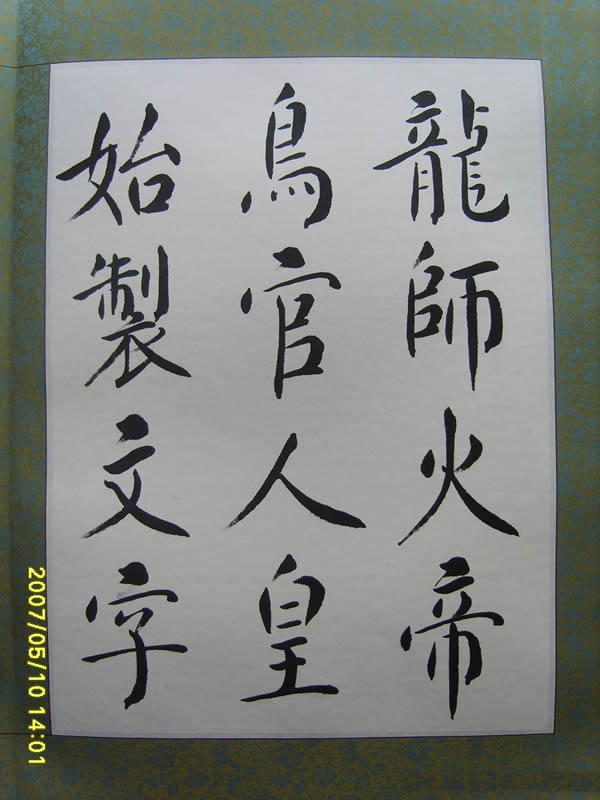 龍師火帝
鳥官人皇
始製文字
2007/05/10 14:01